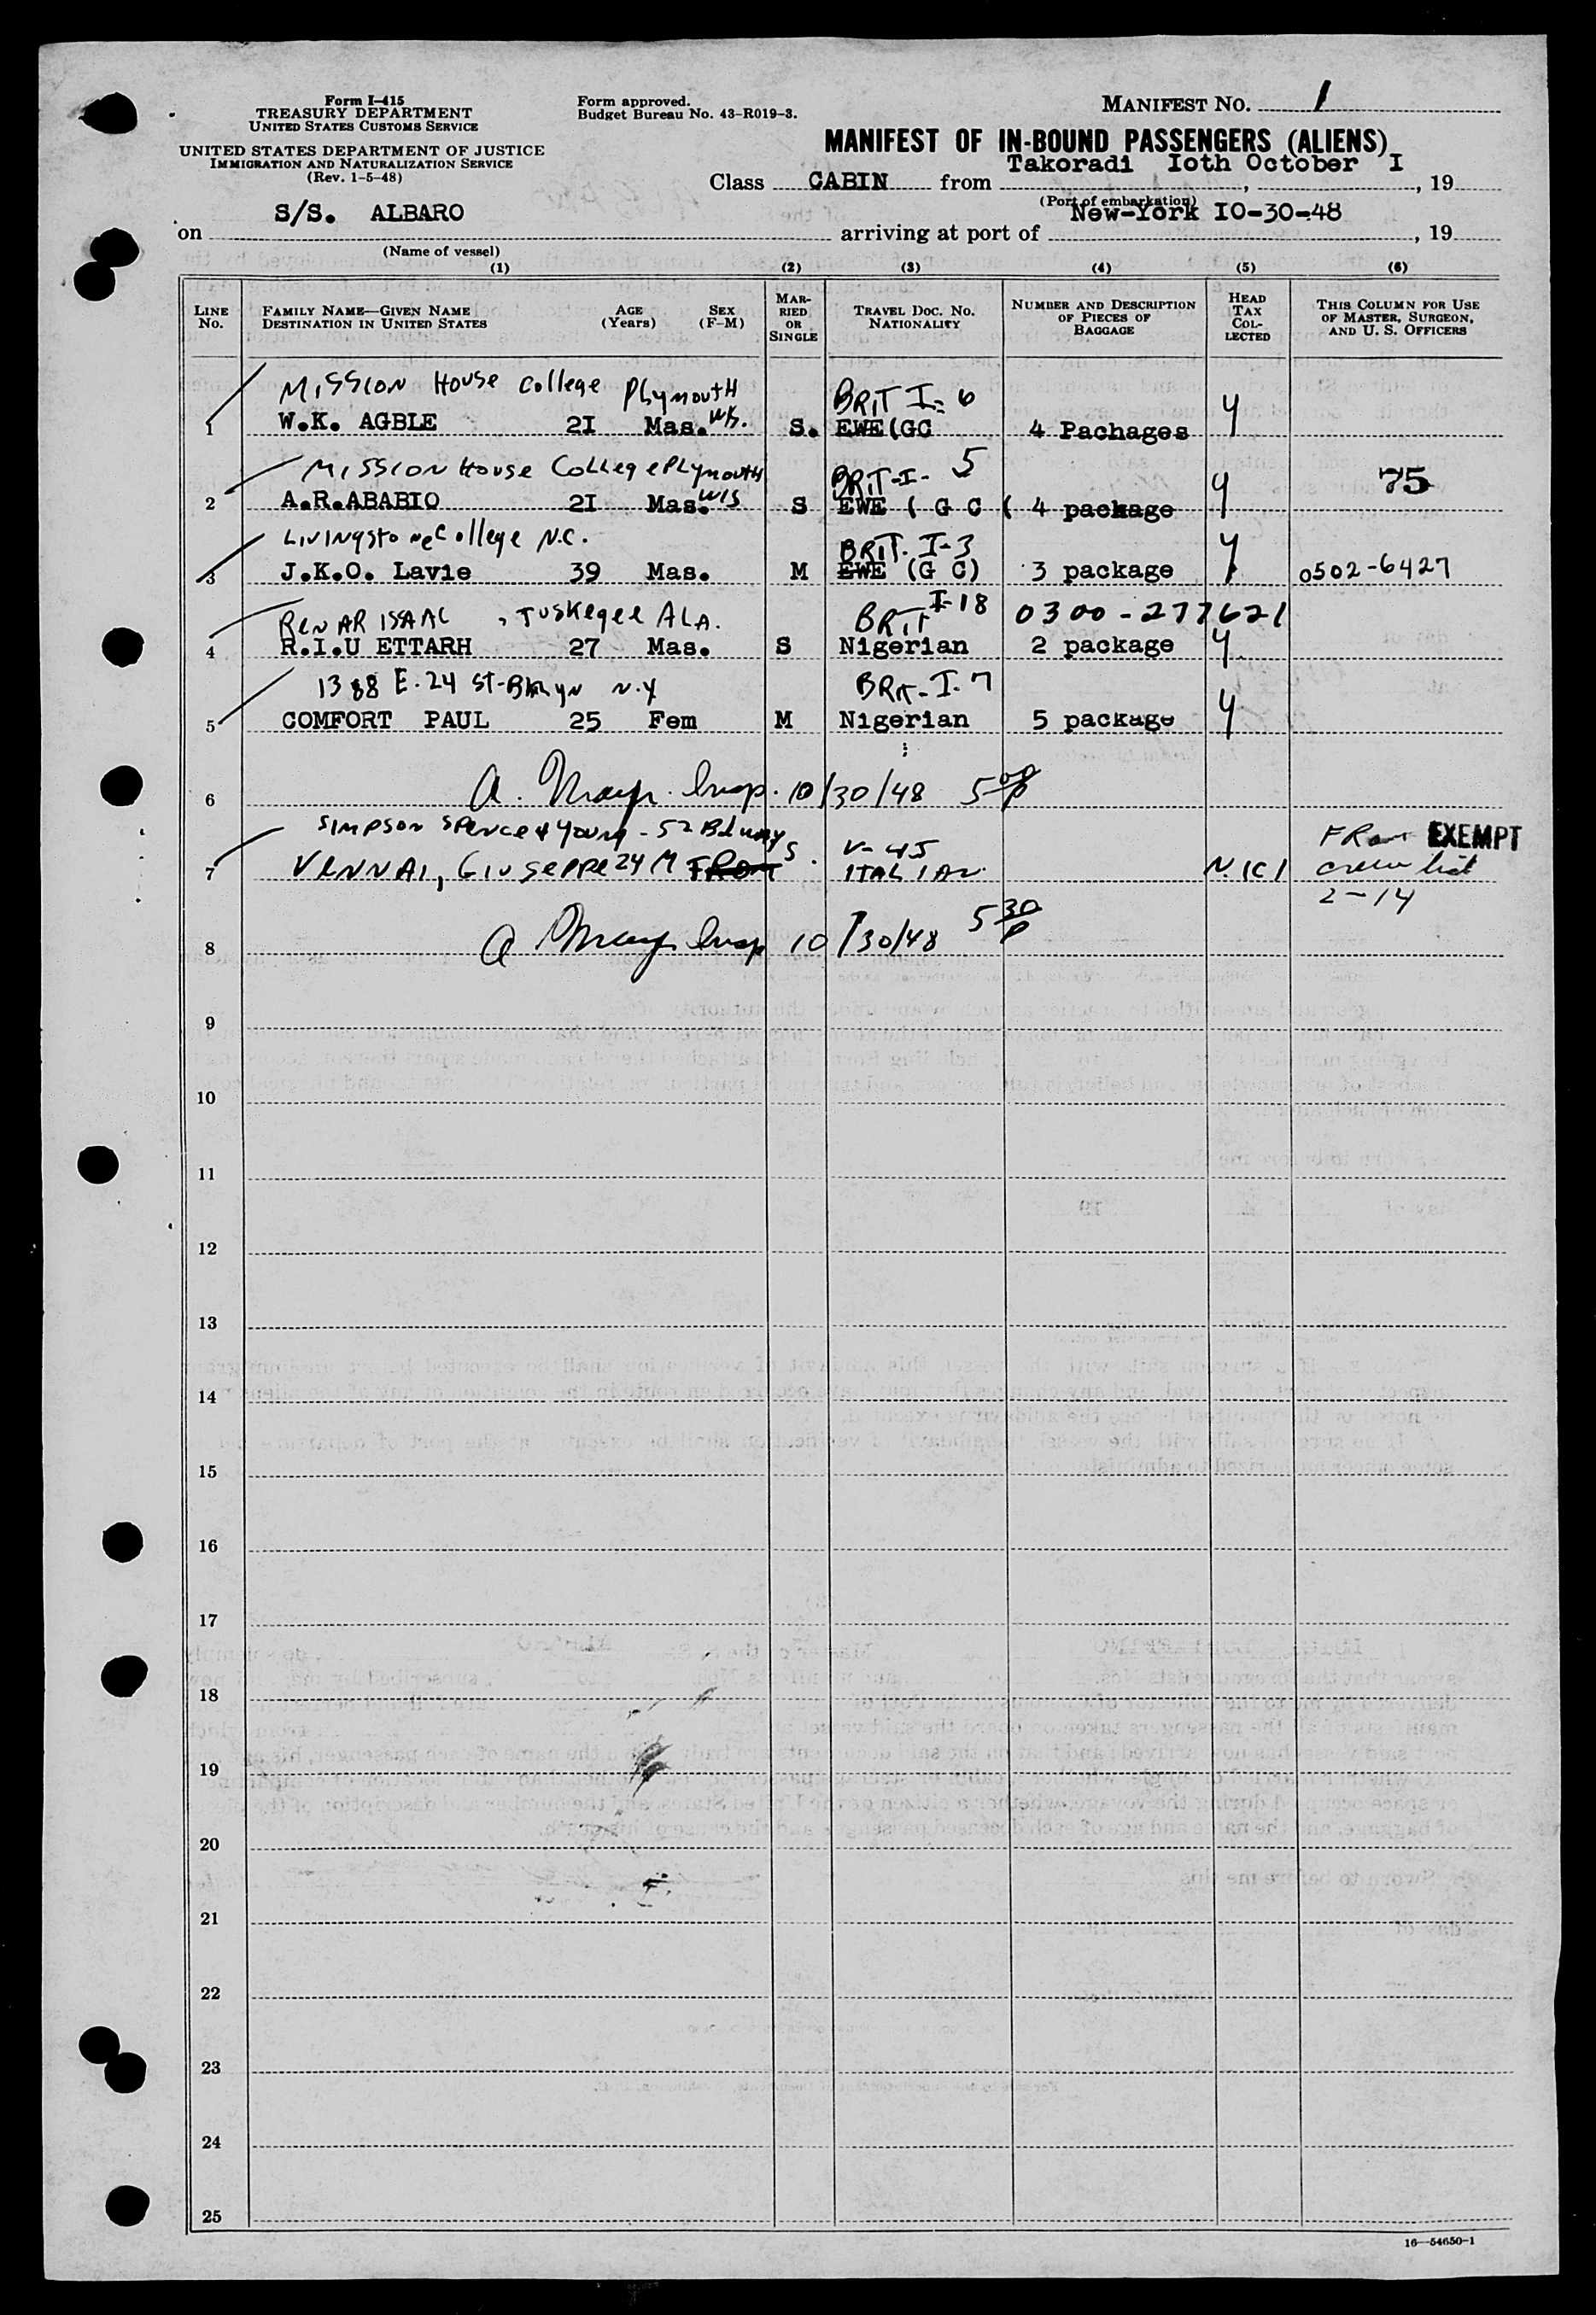 Form I-415
TREASURY DEPARTMENT
UNITED STATES CUSTOMS SERVICE
UNITED STATES DEPARTMENT OF JUSTICE
IMMIGRATION AND NATURALIZATION SERVICE
(Rev. 1-5-48)
Form approved.
Budget Bureau No. 43-R019-3.
MANIFEST NO. 1
MANIFEST OF IN-BOUND PASSENGERS (ALIENS)
Class CABIN from Takoradi Ioth October I, 19
(Port of embarkation)
on S/S. ALBARO arriving at port of New-York IO-30-48, 19
(Name of vessel)
(1) (2) (3) (4) (5) (6)
LINE No. FAMILY NAME—GIVEN NAME DESTINATION IN UNITED STATES AGE (Years) SEX (F-M) MARRIED OR SINGLE TRAVEL DOC. NO. NATIONALITY NUMBER AND DESCRIPTION OF PIECES OF BAGGAGE HEAD TAX COLLECTED THIS COLUMN FOR USE OF MASTER, SURGEON, AND U. S. OFFICERS
Mission House College Plymouth BRIT I-6
1 W.K. AGBLE 2I Mas. Wis. S. EWE(GC 4 Pachages y
Mission House College Plymouth BRIT-I-5 75
2 A.R.ABABIO 2I Mas. Wis S EWE ( G C ( 4 package y
Livingstone College N.C. BRIT. I-3
3 J.K.O. Lavie 39 Mas. M EWE (G C) 3 package y 0502-6427
ISAAC, Tuskegee ALA. BRIT I-18 0300-277621
4 R.I.U ETTARH 27 Mas. S Nigerian 2 package y
1388 E. 24 St-Bklyn N.Y BRIT-I-7
5 COMFORT PAUL 25 Fem M Nigerian 5 package y
6 A. Insp. 10/30/48 5 00 P
Simpson Spence & Young - 52 Bdway V-45 FROM EXEMPT
7 VENNAI, Giuseppe 24 M FROM S. ITALIAN crew list
2-14
8 A Insp 10/30/48 5 30 P
9
10
11
12
13
14
15
16
17
18
19
20
21
22
23
24
25
16—54650-1